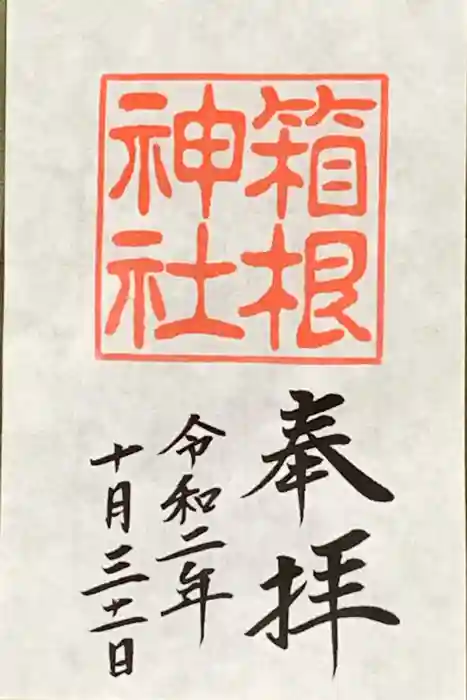 箱根
神社
奉拝
令和二年
十月三十一日